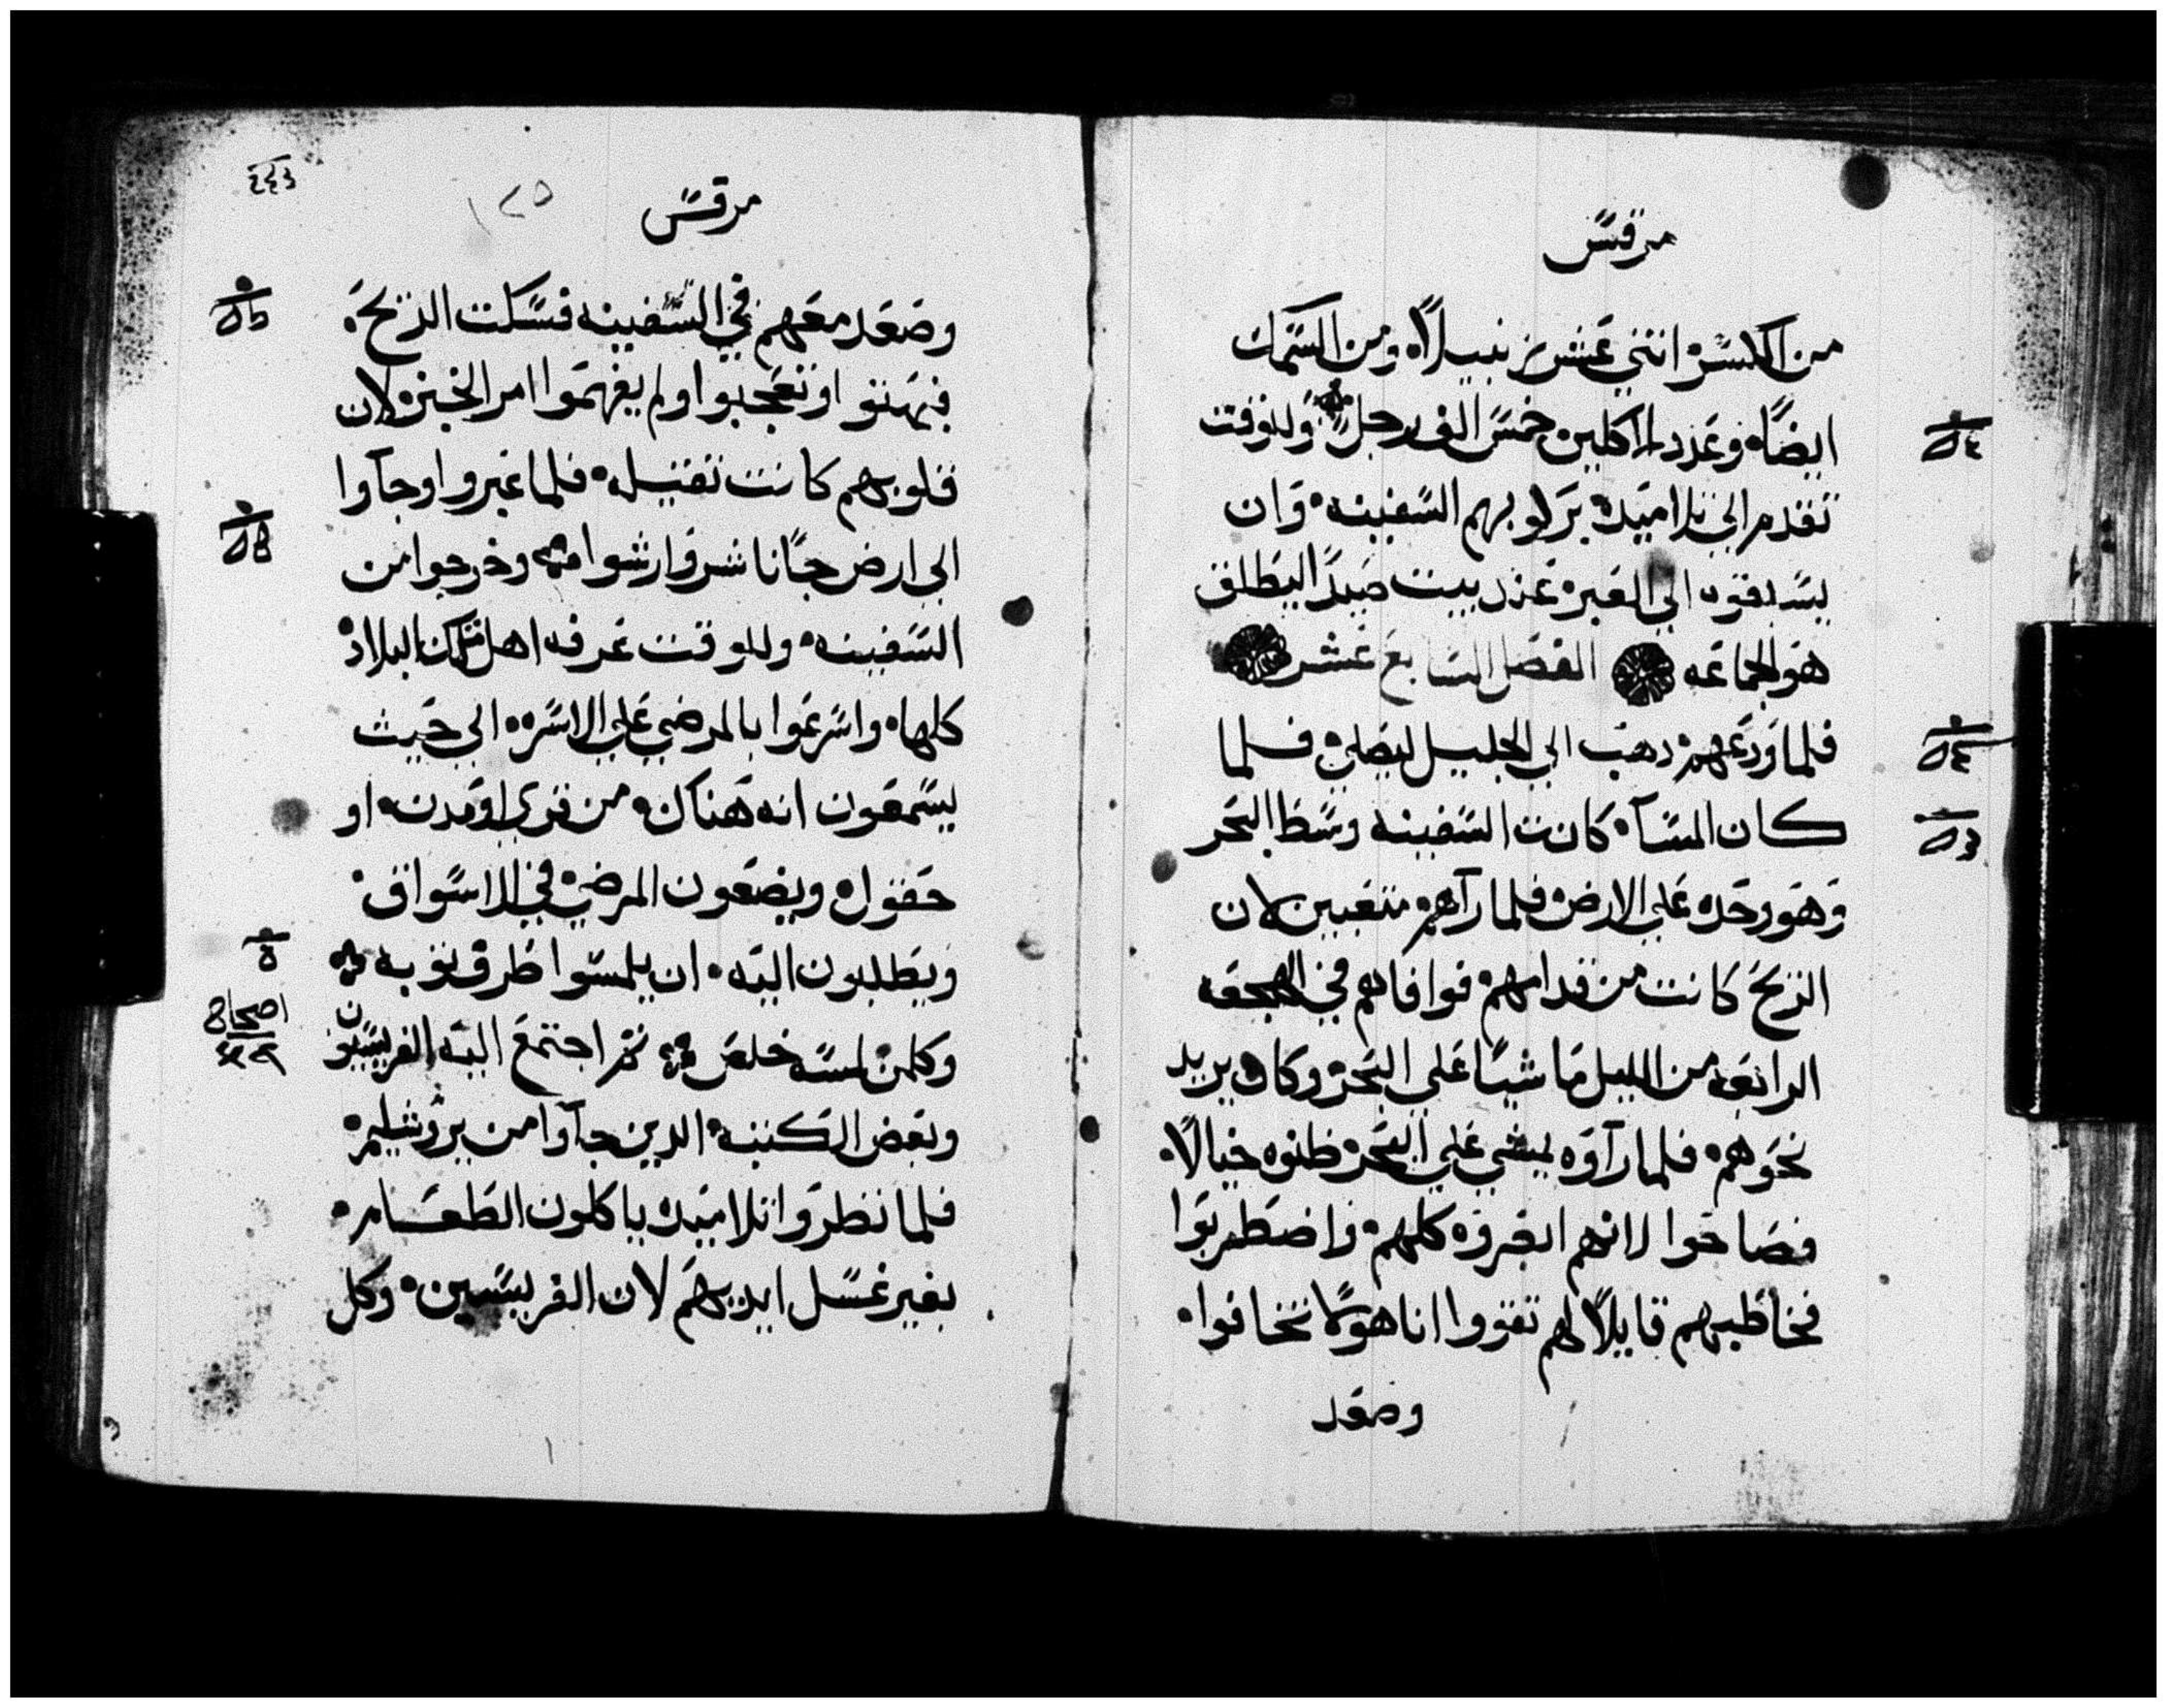 مرقس
من الكسر اثني عشر زنبيلاً ومن السمك
ايضاً وعدد الاكلين خمس الف رجل وللوقت
تقدم الي تلاميده بركوبهم السفينه وان
يسبقوه الي العبر عند بيت صيدا ليطلق
هو الجماعه الفصل السابع عشر
فلما ودعهم دهب الي الجليل ليصلي فلما
كان المسآ كانت السفينه وسط البحر
وهو وحده علي الارض فلما رآهم متعبين لان
الريح كانت من قدامهم فوافاهم في الهجعه
الرابعه من الليل ماشياً علي البحر وكان يريد
نحوهم فلما رآوه يمشي علي البحر ظنوه خيالاً
فصاحوا لانهم ابصروه كلهم واضطربوا
فخاطبهم قايلاً لهم تقووا انا هو لا تخافوا
وصعد
مرقس
١٢٥
وصعد معهم في السفينه فسكت الريح
فبهتوا وتعجبوا ولم يفهموا امر الخبز لان
قلوبهم كانت تقيله فلما عبروا وجآوا
الي ارض جاناشر وارشوا وخرجوا من
السفينه وللوقت عرفه اهل تلك البلاد
كلها واسرعوا بالمرضي علي الاسره الي حيث
يسمعون انه هناك من قري او مدن او
حقول ويضعون المرضي في الاسواق
ويطلبون اليه ان يلمسوا طرف توبه
وكلمن لمسه خلص تم اجتمع اليه الفريسيون
اصحاح
وبعض الكتبه الدين جآوا من يروشليم
فلما نظروا تلاميده ياكلون الطعام
بغير غسل ايديهم لان الفريسين وكل